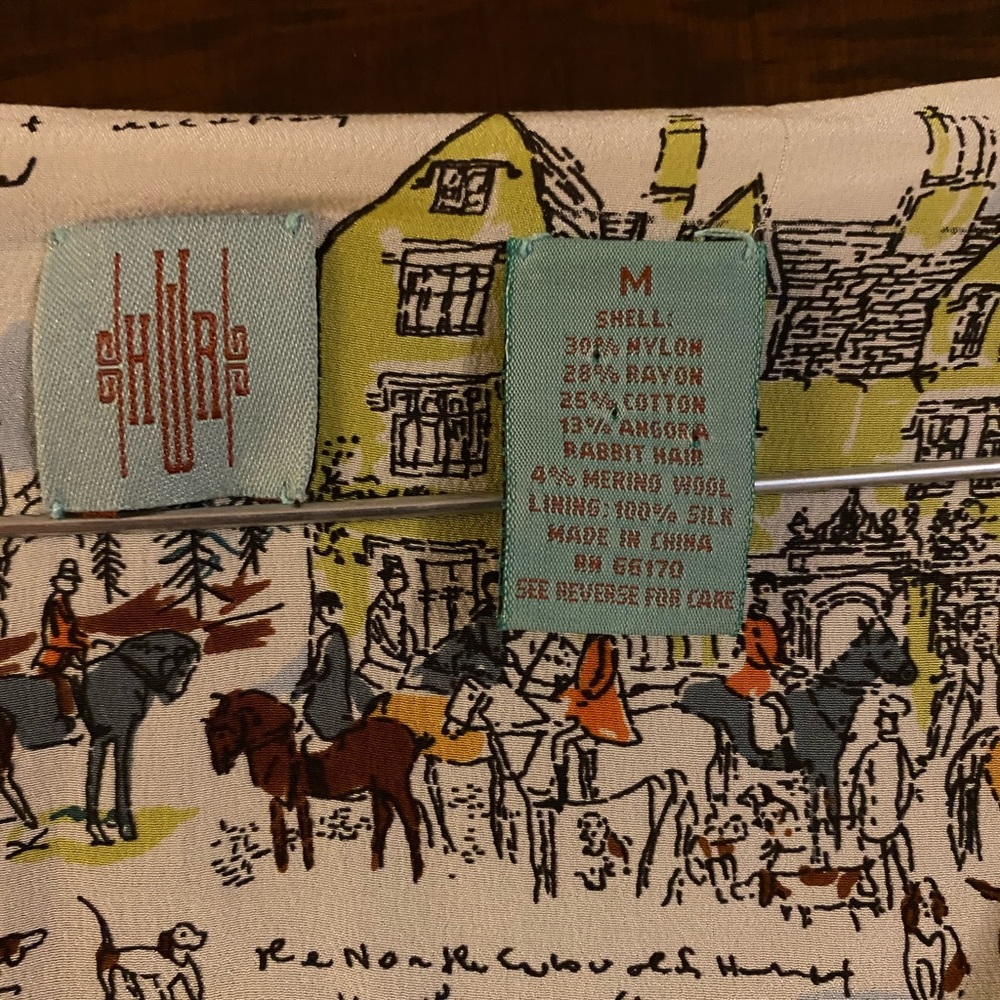 HWR
M
SHELL:
30% NYLON
28% RAYON
25% COTTON
13% ANGORA
RABBIT HAIR
4% MERINO WOOL
LINING: 100% SILK
MADE IN CHINA
RN 66170
SEE REVERSE FOR CARE
The